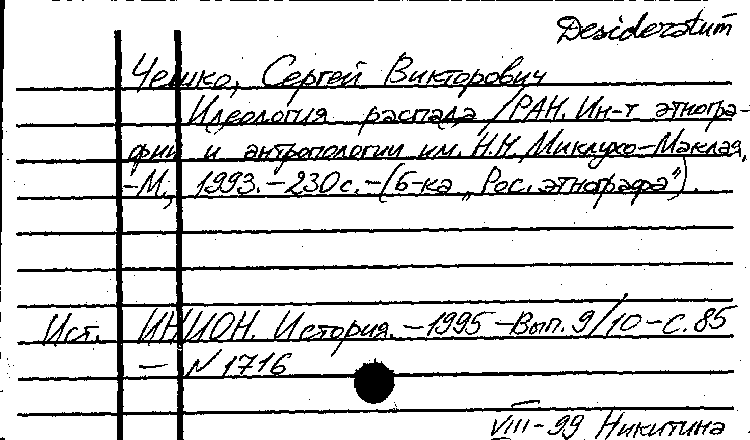 Desideratum
Чешко, Сергей Викторович
Идеология распада / РАН. Ин-т этногра-
фии и антропологии им. Н.Н. Миклухо-Маклая,
-М., 1993.-230с.-(Б-ка „Рос. этнографа").
Ист. ИНИОН. История.-1995-Вып. 9/10-С. 85
— N 1716
VIII-99 Никитина